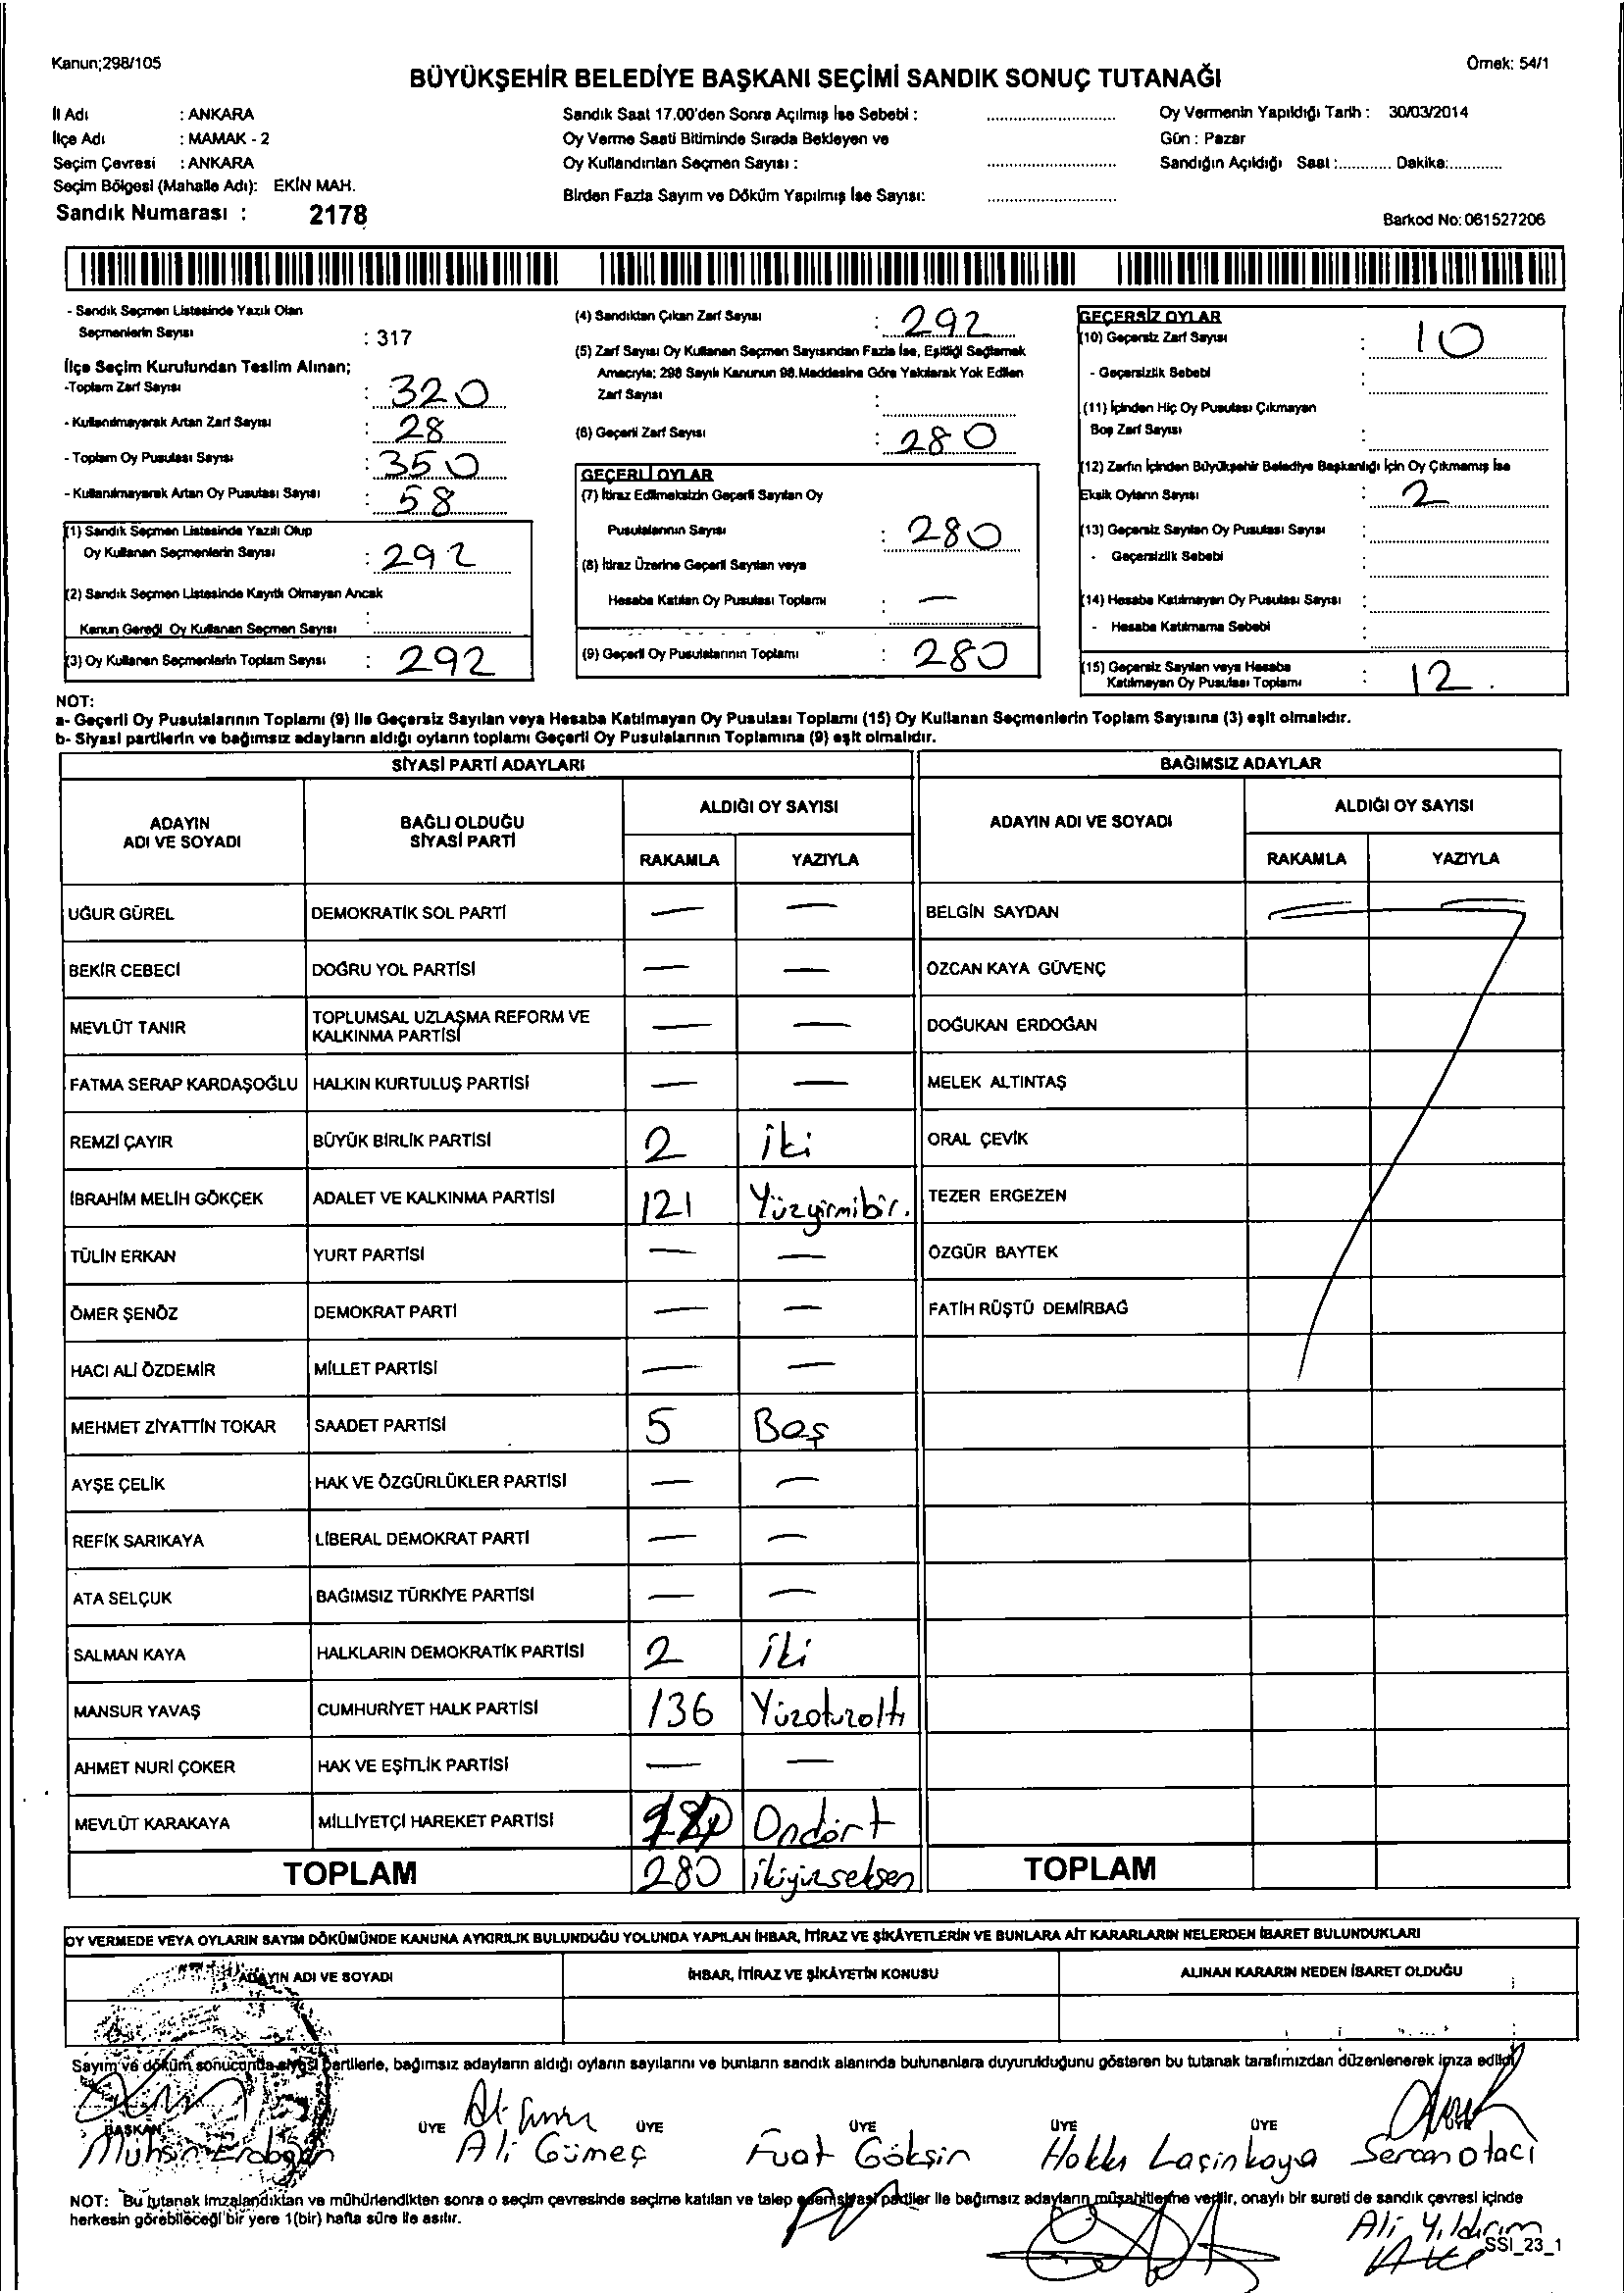 Kanun;298/105
Örnek: 54/1
BÜYÜKŞEHİR BELEDİYE BAŞKANI SEÇİMİ SANDIK SONUÇ TUTANAĞI
İl Adı : ANKARA
İlçe Adı : MAMAK - 2
Seçim Çevresi : ANKARA
Seçim Bölgesi (Mahalle Adı): EKİN MAH.
Sandık Numarası : 2178
Sandık Saat 17.00'den Sonra Açılmış İse Sebebi :
Oy Verme Saati Bitiminde Sırada Bekleyen ve
Oy Kullandırılan Seçmen Sayısı :
Birden Fazla Sayım ve Döküm Yapılmış İse Sayısı:
Oy Vermenin Yapıldığı Tarih : 30/03/2014
Gün : Pazar
Sandığın Açıldığı Saat :............ Dakika:............
Barkod No: 061527206
- Sandık Seçmen Listesinde Yazılı Olan
Seçmenlerin Sayısı : 317
İlçe Seçim Kurulundan Teslim Alınan;
-Toplam Zarf Sayısı : 320
- Kullanılmayarak Artan Zarf Sayısı : 28
- Toplam Oy Pusulası Sayısı : 350
- Kullanılmayarak Artan Oy Pusulası Sayısı : 58
(1) Sandık Seçmen Listesinde Yazılı Olup
Oy Kullanan Seçmenlerin Sayısı : 292
(2) Sandık Seçmen Listesinde Kayıtlı Olmayan Ancak
Kanun Gereği Oy Kullanan Seçmen Sayısı :
(3) Oy Kullanan Seçmenlerin Toplam Sayısı : 292
(4) Sandıktan Çıkan Zarf Sayısı : 292
(5) Zarf Sayısı Oy Kullanan Seçmen Sayısından Fazla İse, Eşitliği Sağlamak
Amacıyla; 298 Sayılı Kanunun 98.Maddesine Göre Yakılarak Yok Edilen
Zarf Sayısı :
(6) Geçerli Zarf Sayısı : 280
GEÇERLİ OYLAR
(7) İtiraz Edilmeksizin Geçerli Sayılan Oy
Pusulalarının Sayısı : 280
(8) İtiraz Üzerine Geçerli Sayılan veya
Hesaba Katılan Oy Pusulası Toplamı : —
(9) Geçerli Oy Pusulalarının Toplamı : 280
GEÇERSİZ OYLAR
(10) Geçersiz Zarf Sayısı : 10
- Geçersizlik Sebebi :
(11) İçinden Hiç Oy Pusulası Çıkmayan
Boş Zarf Sayısı :
(12) Zarfın İçinden Büyükşehir Belediye Başkanlığı İçin Oy Çıkmamış İse
Eksik Oyların Sayısı : 2
(13) Geçersiz Sayılan Oy Pusulası Sayısı :
- Geçersizlik Sebebi :
(14) Hesaba Katılmayan Oy Pusulası Sayısı :
- Hesaba Katılmama Sebebi :
(15) Geçersiz Sayılan veya Hesaba
Katılmayan Oy Pusulası Toplamı : 12.
NOT:
a- Geçerli Oy Pusulalarının Toplamı (9) ile Geçersiz Sayılan veya Hesaba Katılmayan Oy Pusulası Toplamı (15) Oy Kullanan Seçmenlerin Toplam Sayısına (3) eşit olmalıdır.
b- Siyasi partilerin ve bağımsız adayların aldığı oyların toplamı Geçerli Oy Pusulalarının Toplamına (9) eşit olmalıdır.
SİYASİ PARTİ ADAYLARI BAĞIMSIZ ADAYLAR
ADAYIN ADI VE SOYADI BAĞLI OLDUĞU SİYASİ PARTİ ALDIĞI OY SAYISI ADAYIN ADI VE SOYADI ALDIĞI OY SAYISI
RAKAMLA YAZIYLA RAKAMLA YAZIYLA
UĞUR GÜREL DEMOKRATİK SOL PARTİ — — BELGİN SAYDAN
BEKİR CEBECİ DOĞRU YOL PARTİSİ — — ÖZCAN KAYA GÜVENÇ
MEVLÜT TANIR TOPLUMSAL UZLAŞMA REFORM VE KALKINMA PARTİSİ — — DOĞUKAN ERDOĞAN
FATMA SERAP KARDAŞOĞLU HALKIN KURTULUŞ PARTİSİ — — MELEK ALTINTAŞ
REMZİ ÇAYIR BÜYÜK BİRLİK PARTİSİ 2 iki ORAL ÇEVİK
İBRAHİM MELİH GÖKÇEK ADALET VE KALKINMA PARTİSİ 121 Yüzyirmibir. TEZER ERGEZEN
TÜLİN ERKAN YURT PARTİSİ — — ÖZGÜR BAYTEK
ÖMER ŞENÖZ DEMOKRAT PARTİ — — FATİH RÜŞTÜ DEMİRBAĞ
HACI ALİ ÖZDEMİR MİLLET PARTİSİ — —
MEHMET ZİYATTİN TOKAR SAADET PARTİSİ 5 Beş
AYŞE ÇELİK HAK VE ÖZGÜRLÜKLER PARTİSİ — —
REFİK SARIKAYA LİBERAL DEMOKRAT PARTİ — —
ATA SELÇUK BAĞIMSIZ TÜRKİYE PARTİSİ — —
SALMAN KAYA HALKLARIN DEMOKRATİK PARTİSİ 2 iki
MANSUR YAVAŞ CUMHURİYET HALK PARTİSİ 136 Yüzotuzaltı
AHMET NURİ ÇOKER HAK VE EŞİTLİK PARTİSİ — —
MEVLÜT KARAKAYA MİLLİYETÇİ HAREKET PARTİSİ Ondört
TOPLAM 280 ikiyüzseksen TOPLAM
OY VERMEDE VEYA OYLARIN SAYIM DÖKÜMÜNDE KANUNA AYKIRILIK BULUNDUĞU YOLUNDA YAPILAN İHBAR, İTİRAZ VE ŞİKÂYETLERİN VE BUNLARA AİT KARARLARIN NELERDEN İBARET BULUNDUKLARI
ADAYIN ADI VE SOYADI İHBAR, İTİRAZ VE ŞİKÂYETİN KONUSU ALINAN KARARIN NEDEN İBARET OLDUĞU
Sayım ve döküm sonucunda siyasi partilerle, bağımsız adayların aldığı oyların sayılarını ve bunların sandık alanında bulunanlara duyurulduğunu gösteren bu tutanak tarafımızdan düzenlenerek imza edildi.
BAŞKAN ÜYE ÜYE ÜYE ÜYE ÜYE
Muhsin Erdoğan Ali Gümeç Fuat Gökşin Hakkı Laçinkaya Sercan Otacı
NOT: Bu tutanak imzalandıktan ve mühürlendikten sonra o seçim çevresinde seçime katılan ve talep eden siyasi partiler ile bağımsız adayların müşahitlerine verilir, onaylı bir sureti de sandık çevresi içinde
herkesin görebileceği bir yere 1(bir) hafta süre ile asılır.
Ali Yıldırım
SSI_23_1